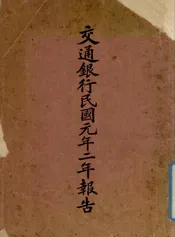 交通銀行民國元年二年報告